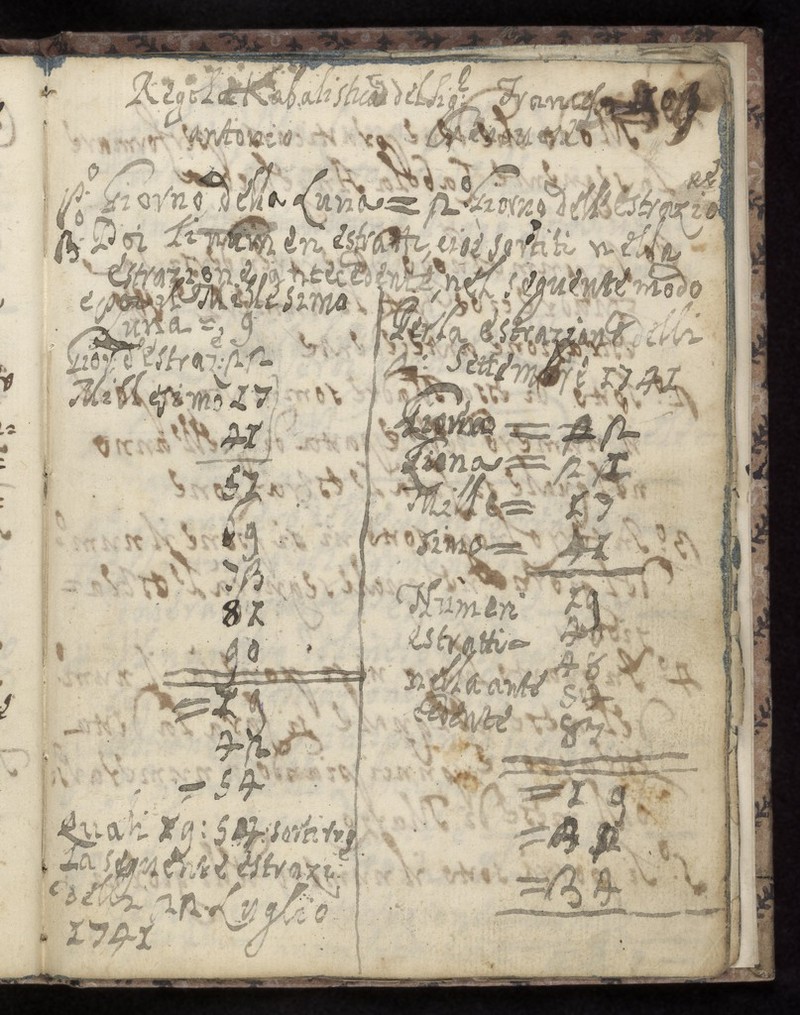 Regola Kabalistica del Sig.e Francesco
Antonio
p.o Giorno della Luna = 2.o Giorno dell'estrazio
ne
3. Poi li numeri estratti, cioè sortiti nella
estrazione antecedente, nel seguente modo
e poi il Millesimo
Luna =, 9
Gior: d'estraz: 22
Millesimo 17
41
57
69
73
81
90
= 19
42
= 54
Quali 19: 54: sortirno
la seguente estrazi:e
delli 22 Luglio
1741
Per la estrazione delli
2: Settembre 1741
Giorno = 22
Luna = 21
Mille = 17
simo = 41
Numeri 19
estratti = 40
nella ante 48
cedente 54
87
= 19
= 32
= 34